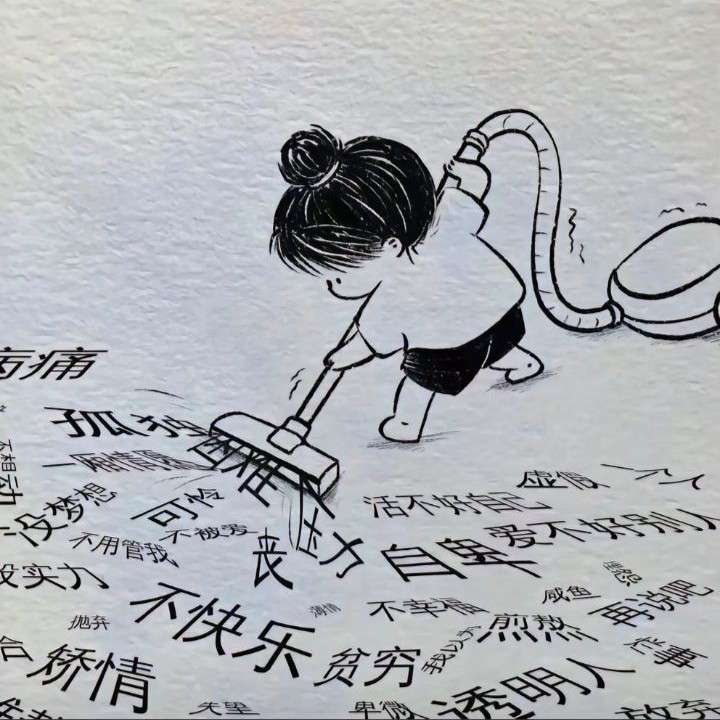 病痛
孤独
不想动
没梦想
可怜
不被爱
不用管我
活不好自己
虚假
一个人
压力
丧
自卑
爱不好别人
没实力
不快乐
薄情
不幸福
咸鱼
埋怨
再说吧
抛弃
矫情
贫穷
我以为
煎熬
透明人
失望
卑微
放弃